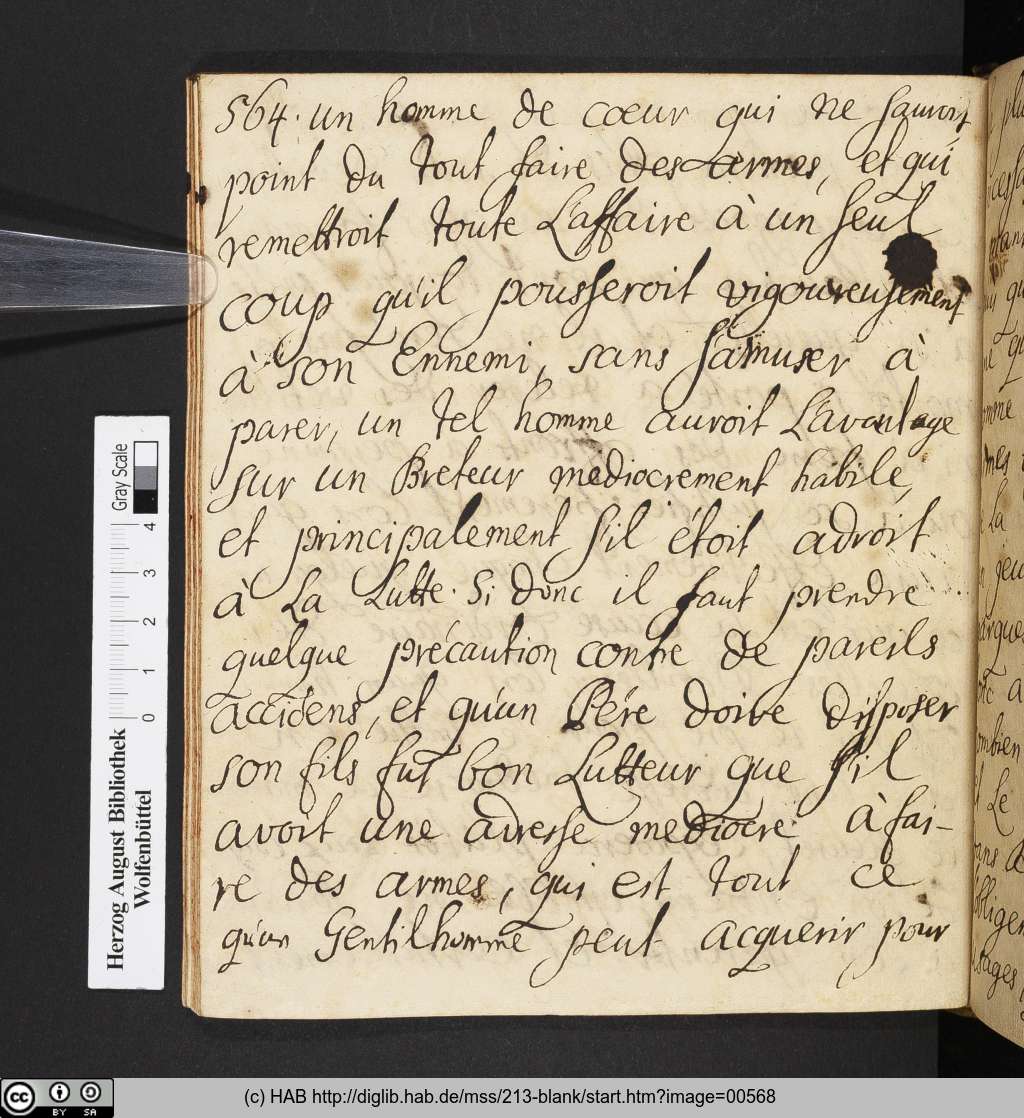 564. un homme de cœur qui ne sauroit
point du tout faire des armes, et qui
remettroit toute L'affaire à un seul
coup qu'il pousseroit vigoureusement
à son Ennemi, sans s'amuser à
parer, un tel homme auroit L'avantage
sur un Breteur médiocrement habile,
et principalement s'il étoit adroit
à La Lutte. Si donc il faut prendre
quelque précaution contre de pareils
accidens, et qu'un Pére doive disposer
son fils fut bon Lutteur que s'il
avoit une adresse mediocre à fai-
re des armes, qui est tout ce
qu'un Gentilhomme peut acquerir pour
Herzog August Bibliothek
Wolfenbüttel
Gray Scale
0 1 2 3 4
(c) HAB http://diglib.hab.de/mss/213-blank/start.htm?image=00568
cc BY SA